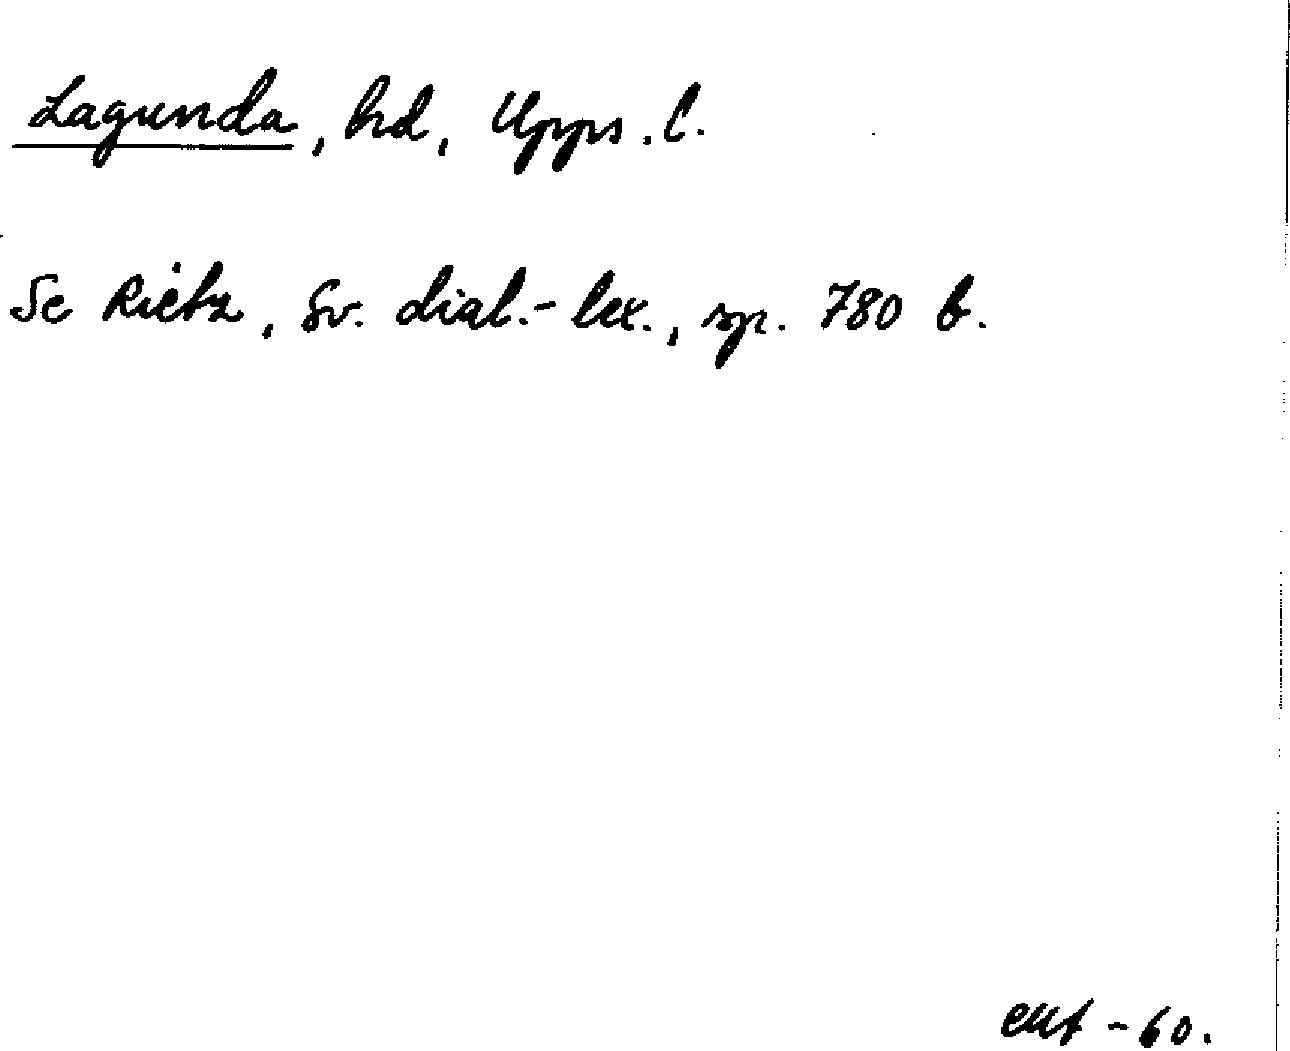 Lagunda, hd, Upps. l.
Se Rietz, Sv. dial.-lex., sp. 780 b.
-60.